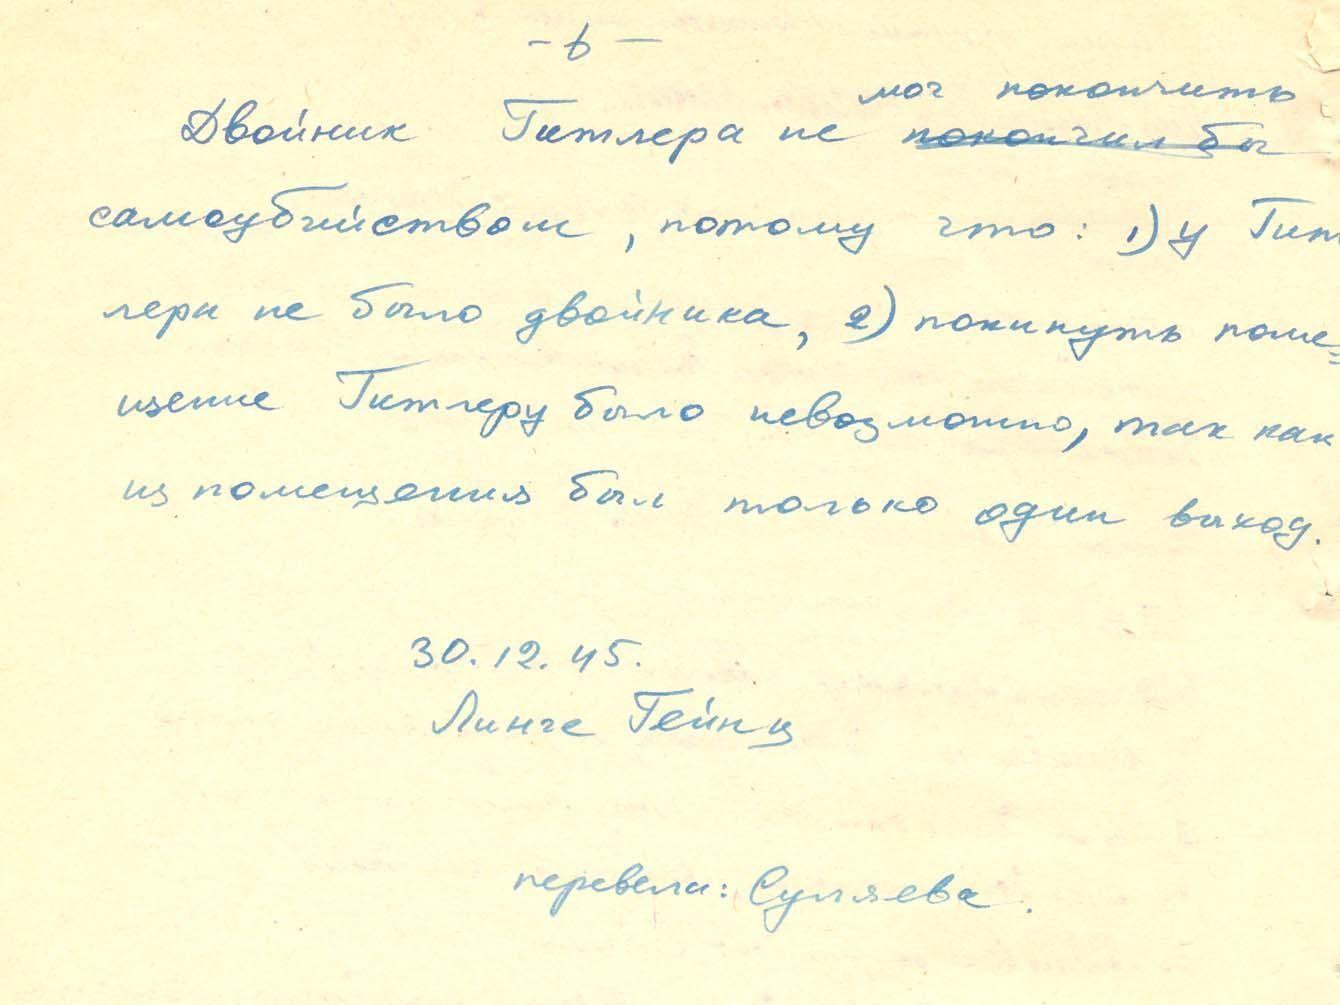 - 6 -
мог покончить
Двойник Гитлера не покончил бы
самоубийством, потому что: 1) у Гит
лера не было двойника, 2) покинуть поме=
щение Гитлеру было невозможно, так как
из помещения был только один выход.
30.12.45.
Линге Гейнц
перевела: Суляева.